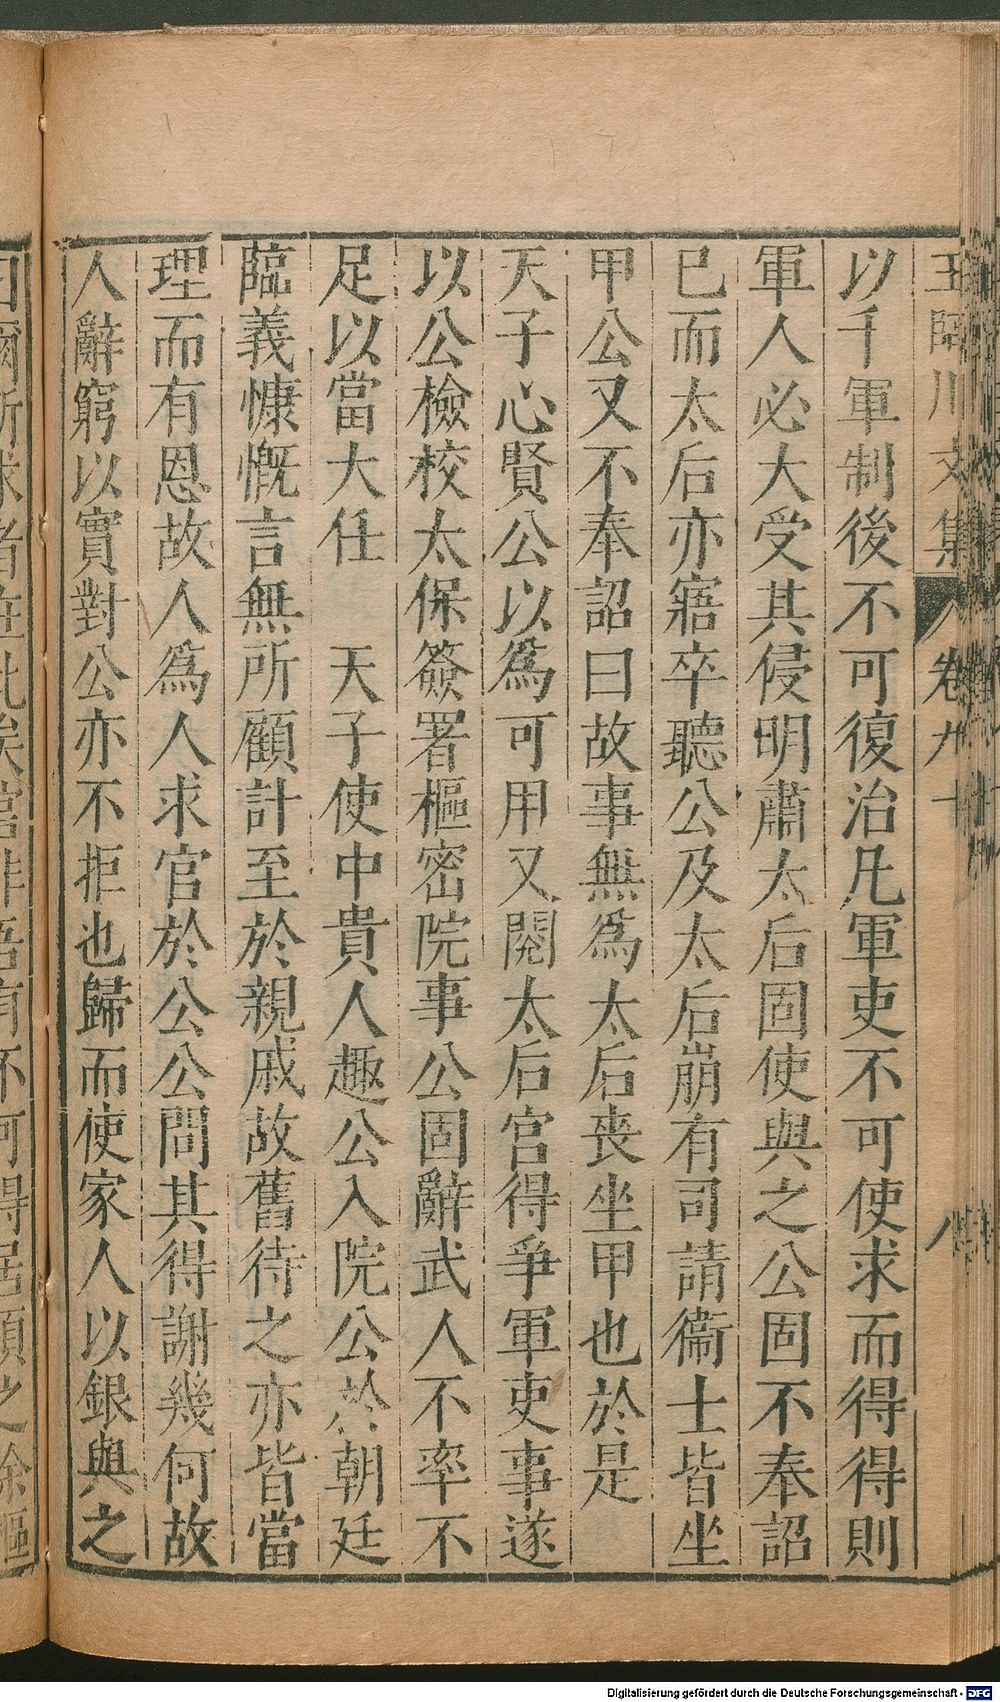 王臨川文集 卷九十 八
以千軍制後不可復治凡軍吏不可使求而得得則
軍人必大受其侵明肅太后固使與之公固不奉詔
已而太后亦寤卒聽公及太后崩有司請衞士皆坐
甲公又不奉詔曰故事無爲太后喪坐甲也於是
天子心賢公以爲可用又閱太后宮得爭軍吏事遂
以公檢校太保簽署樞密院事公固辭武人不率不
足以當大任 天子使中貴人趣公入院公於朝廷
臨義慷慨言無所顧計至於親戚故舊待之亦皆當
理而有恩故人爲人求官於公公問其得謝幾何故
人辭窮以實對公亦不拒也歸而使家人以銀與之
Digitalisierung gefördert durch die Deutsche Forschungsgemeinschaft - DFG